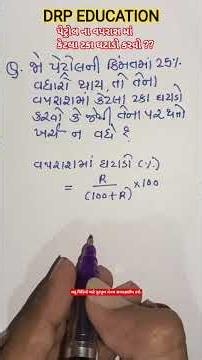 DRP EDUCATION
પેટ્રોલ ના વપરાશ માં
કેટલા ટકા ઘટાડો કરવો ??
Q. જો પેટ્રોલની કિંમતમાં 25%
વધારો થાય, તો તેના
વપરાશમાં કેટલા ટકા ઘટાડો
કરવો કે જેથી તેના પર થતો
ખર્ચ ન વધે ?
વપરાશમાં ઘટાડો (%)
= R / (100+R) × 100